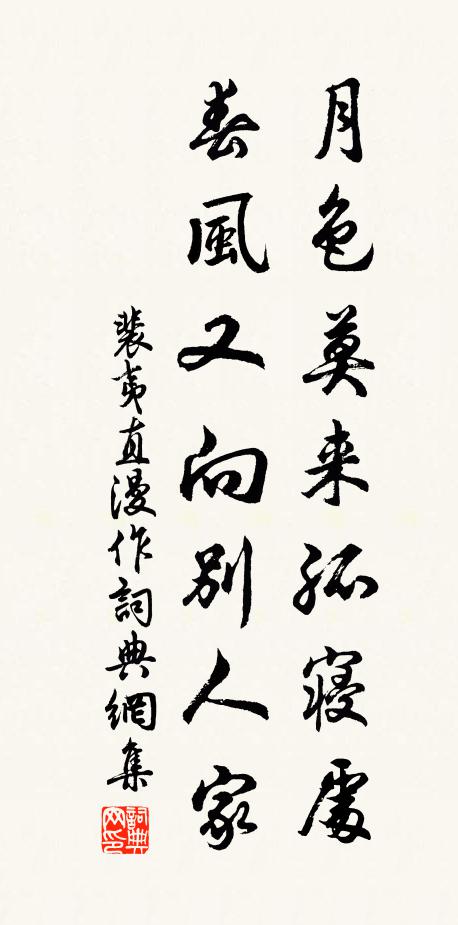 月色莫来孤寝處
春風又向別人家
裴夷直漫作詞典網集
詞典网印